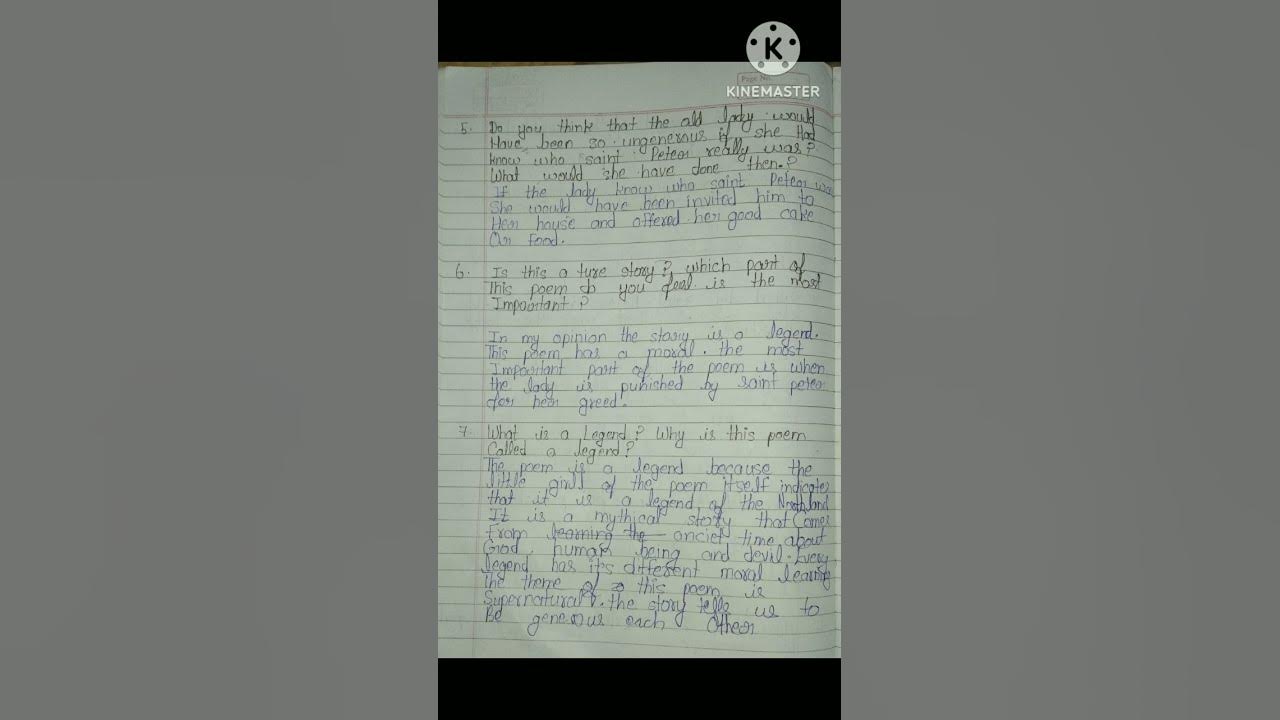 K
KINEMASTER
Page No.
5. Do you think that the old lady would
Have been so ungenerous if she Had
know who saint Peteor really was?
What would she have done then.?
If the lady know who saint Peteor was
She would have been invited him to
Her house and offered her good cake
Or Food.
6. Is this a ture story? which part of
This poem do you feel is the most
Important?
In my opinion the story is a legend.
This poem has a moral. the most
Important part of the poem is when
the lady is punished by saint peteo
for her greed.
7. What is a Legend? Why is this poem
Called a legend?
The poem is a legend because the
little girl of the poem itself indicates
that it is a legend of the Northland
It is a mythical story that Comes
From learning the anciet time about
God, human being and devil. Every
legend has it's different moral learing
The theme of this poem is
Supernatural. the story tells us to
Be generous each Other